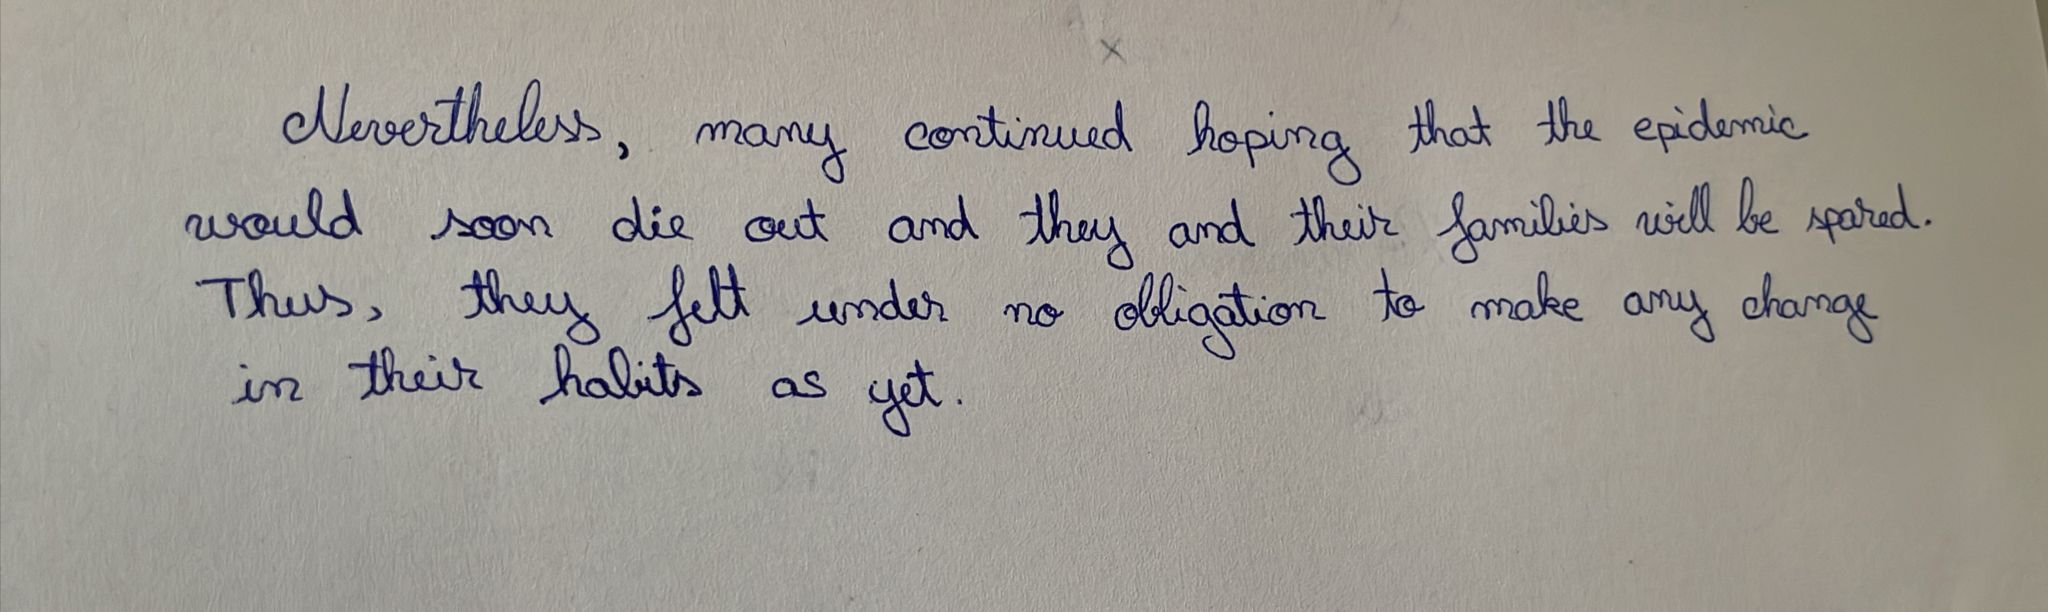 ×
Nevertheless, many continued hoping that the epidemic
would soon die out and they and their families will be spared.
Thus, they felt under no obligation to make any change
in their habits as yet.